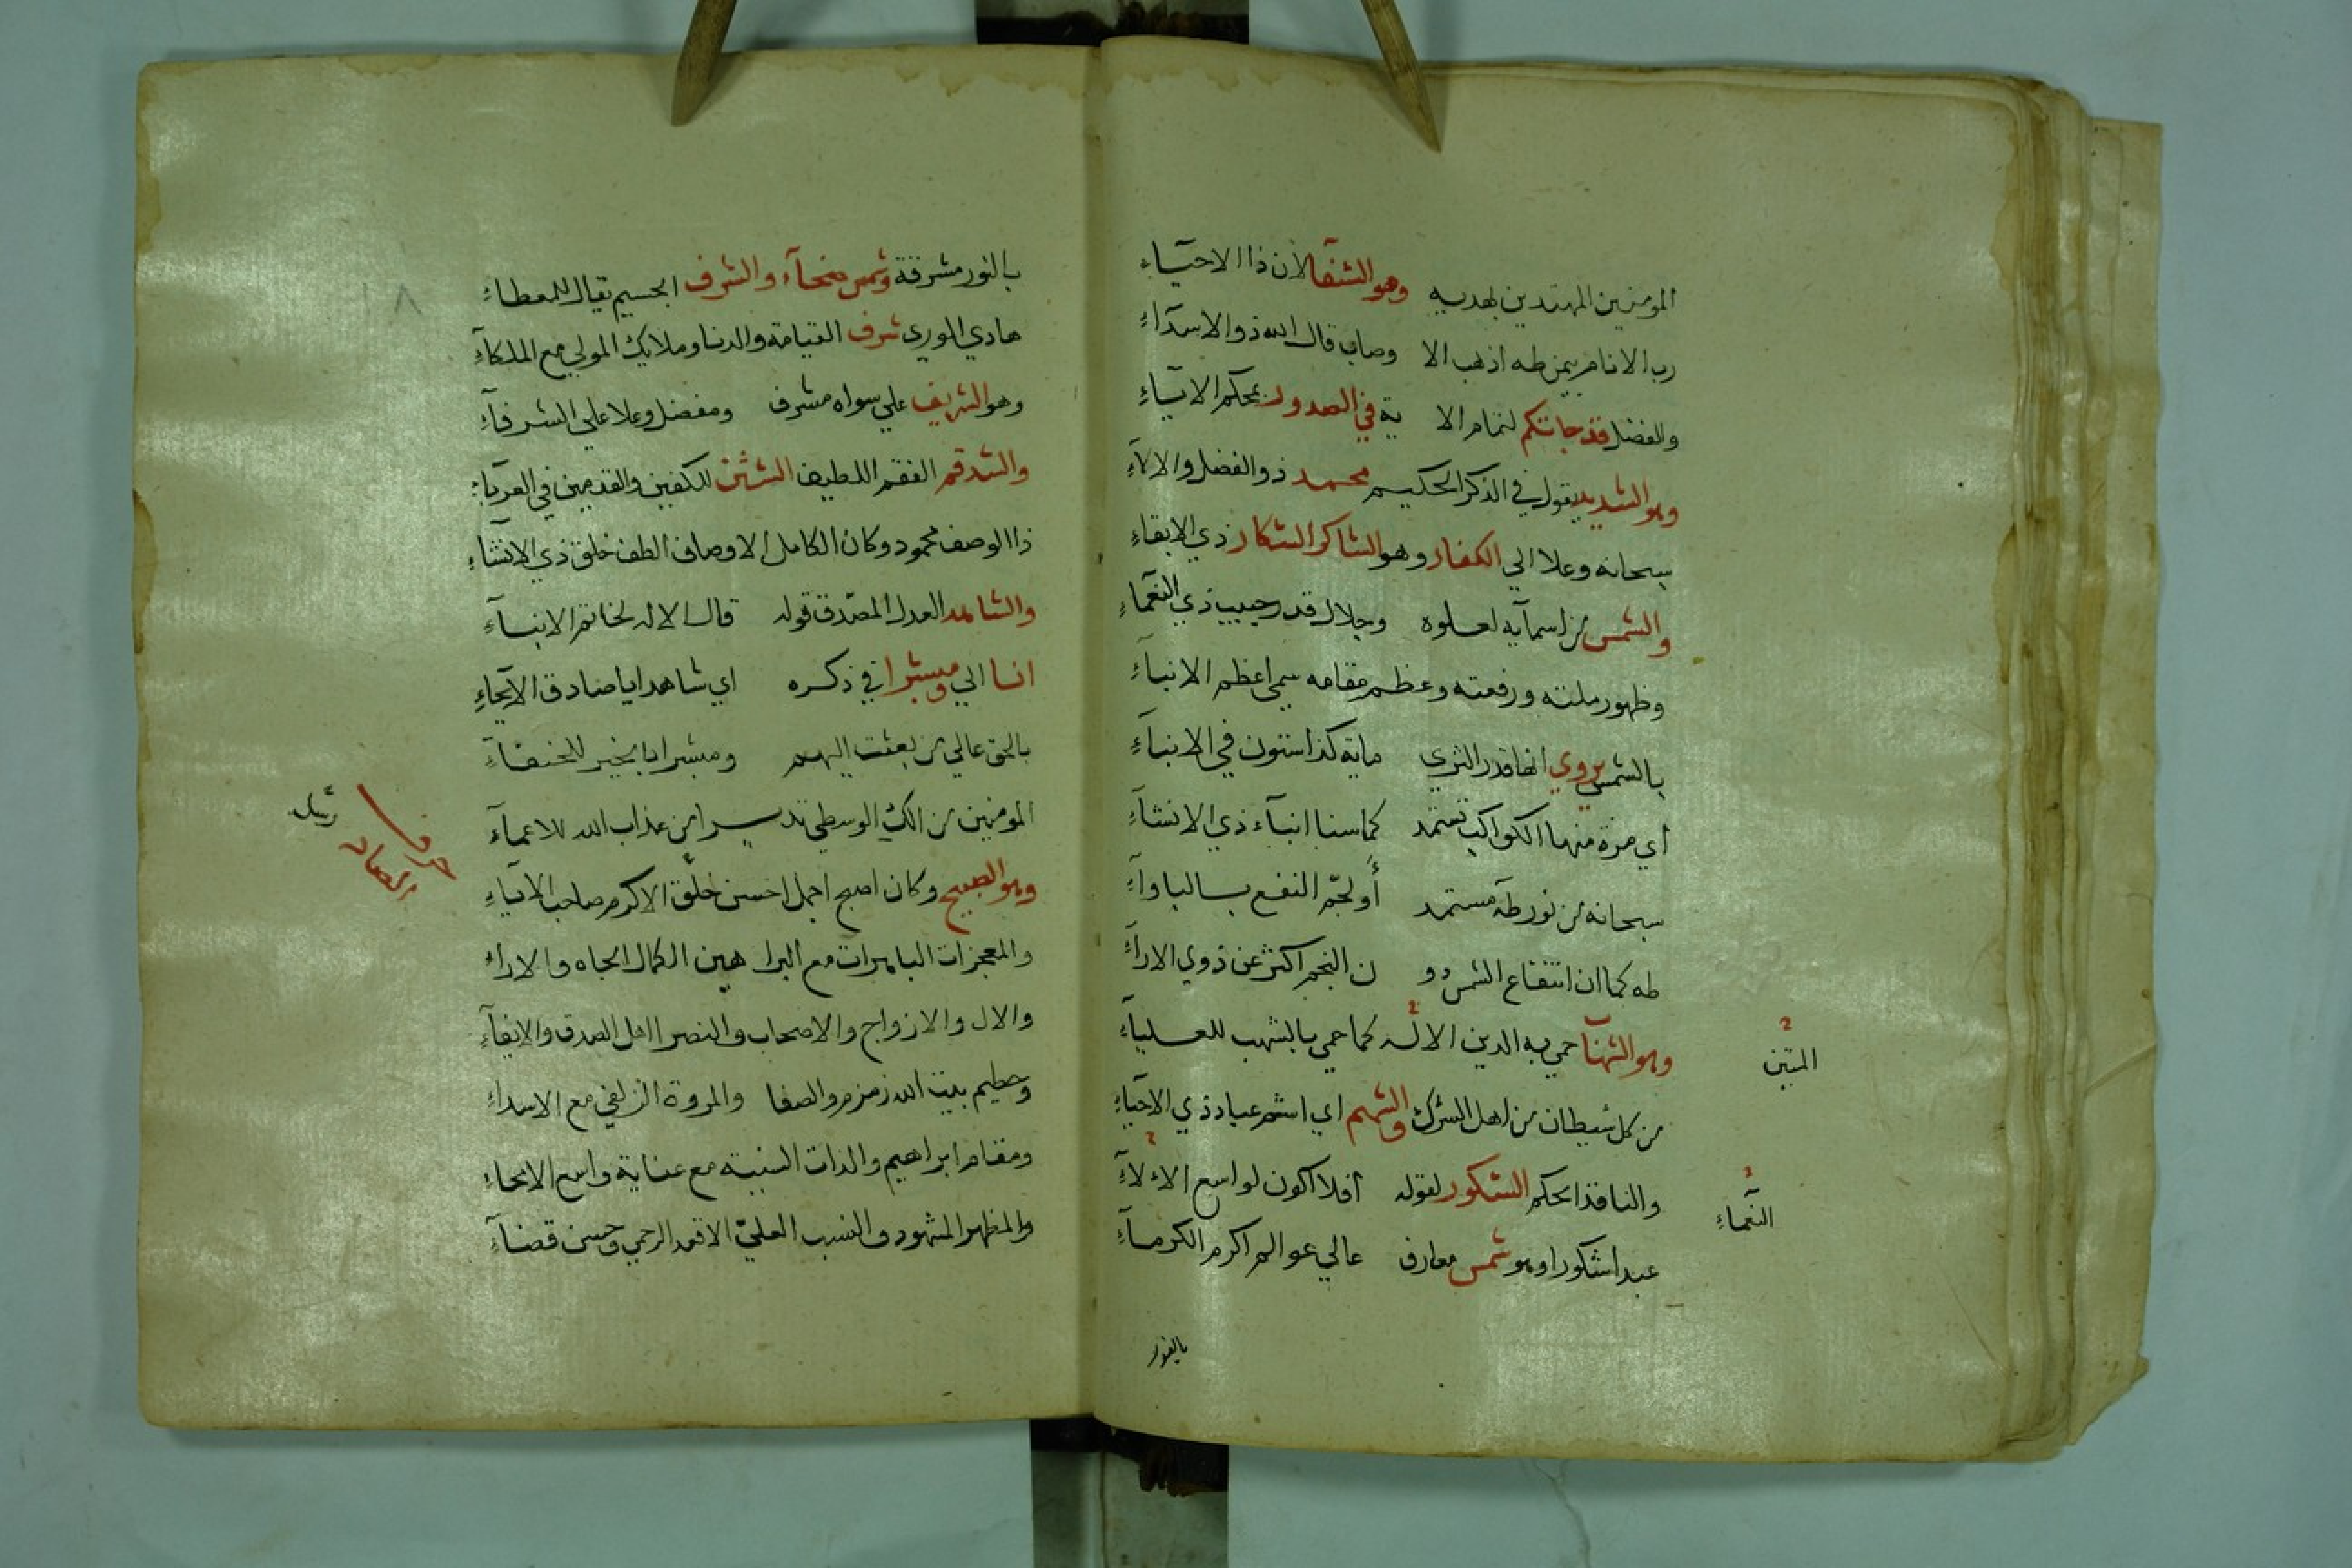 المومنين المهتدين بهديه وهو الشفا لان ذا الاحياءِ
رب الانام بيمن طه اذهب الا وصاب قال الله ذو الاسداءِ
والفضل قد جاتكم لتمام الا ية في الصدور بمحكم الايتاءِ
وهو الشديد يقول في الذكر الحكيم محمد ذو الفضل والالآءِ
سبحانه وعلا الي الكفار وهو الشاكر الشكار ذي الابقاءِ
والشمس من اسمآيه لعلوه وجلال قدر حبيب ذي النعمآءِ
وظهور ملته ورفعته وعظم مقامه سمي اعظم الانبآءِ
بالشمس يروي انها قدر الثري ماية كذا ستون في الانبآءِ
اي مرة منها الكواكب تستمد كما سنا انبآء ذي الانشآءِ
سبحانه من نور طه مستمد أو لجم النفع
طه كما ان انتفاع الشمس دو ن النجم اكثر عن ذوي الارآءِ
وهو الشهاب حمي به الدين الاله كما حمي بالشهب للعليآءِ
المتين
من كل شيطان من اهل الشرك والشهم اي اشهر عباد ذي الاحيآءِ
والنافذ الحكم الشكور لقوله افلا اكون لواسع الالآءِ
النعمآءِ
عبدا شكورا وهو شمس معارف عالي عوالم اكرم الكرمآءِ
بالنور
بالنور مشرقة وشمس ضحآء والشرف الجسيم يقال للمعطاءِ
هادي الوري شرف القيامة والدنا وملايك المولي مع الملكآءِ
وهو الشريف علي سواه مشرف ومفضل وعلا علي الشرفآءِ
والشدقم الفقم اللطيف الشثن للكفين والقدمين في العربآءِ
ذا الوصف محمود وكان الكامل الاوصاف الطف خلق ذي الانشاءِ
والشاهد العدل المصدق قوله قال الاله لخاتم الانبآءِ
انا الي ومبشرا في ذكره اي شاهدا يا صادق الايحاءِ
بالحق عالي من بعثت اليهم ومبشرا بالخير للحنفآءِ
المومنين من الوسطي نذيرا من عذاب الله للاعمآءِ
حرف الصاد
وهو الصبيح وكان اصبح اجمل احسن خلق الاكرم صاحب
والمعجزات الباهرات مع البراهين الكمال الجاه والارآءِ
والال والازواج والاصحاب والنصر اهل الصدق والايفآءِ
وحطيم بيت الله زمزم والصفا والمروة الزلفي مع الاسداءِ
ومقام ابراهيم والذات السنية مع عناية واسع الانحاءِ
والمظهر المشهود والنسب العليّ الاقعد الرحمي وحسن قضآءِ